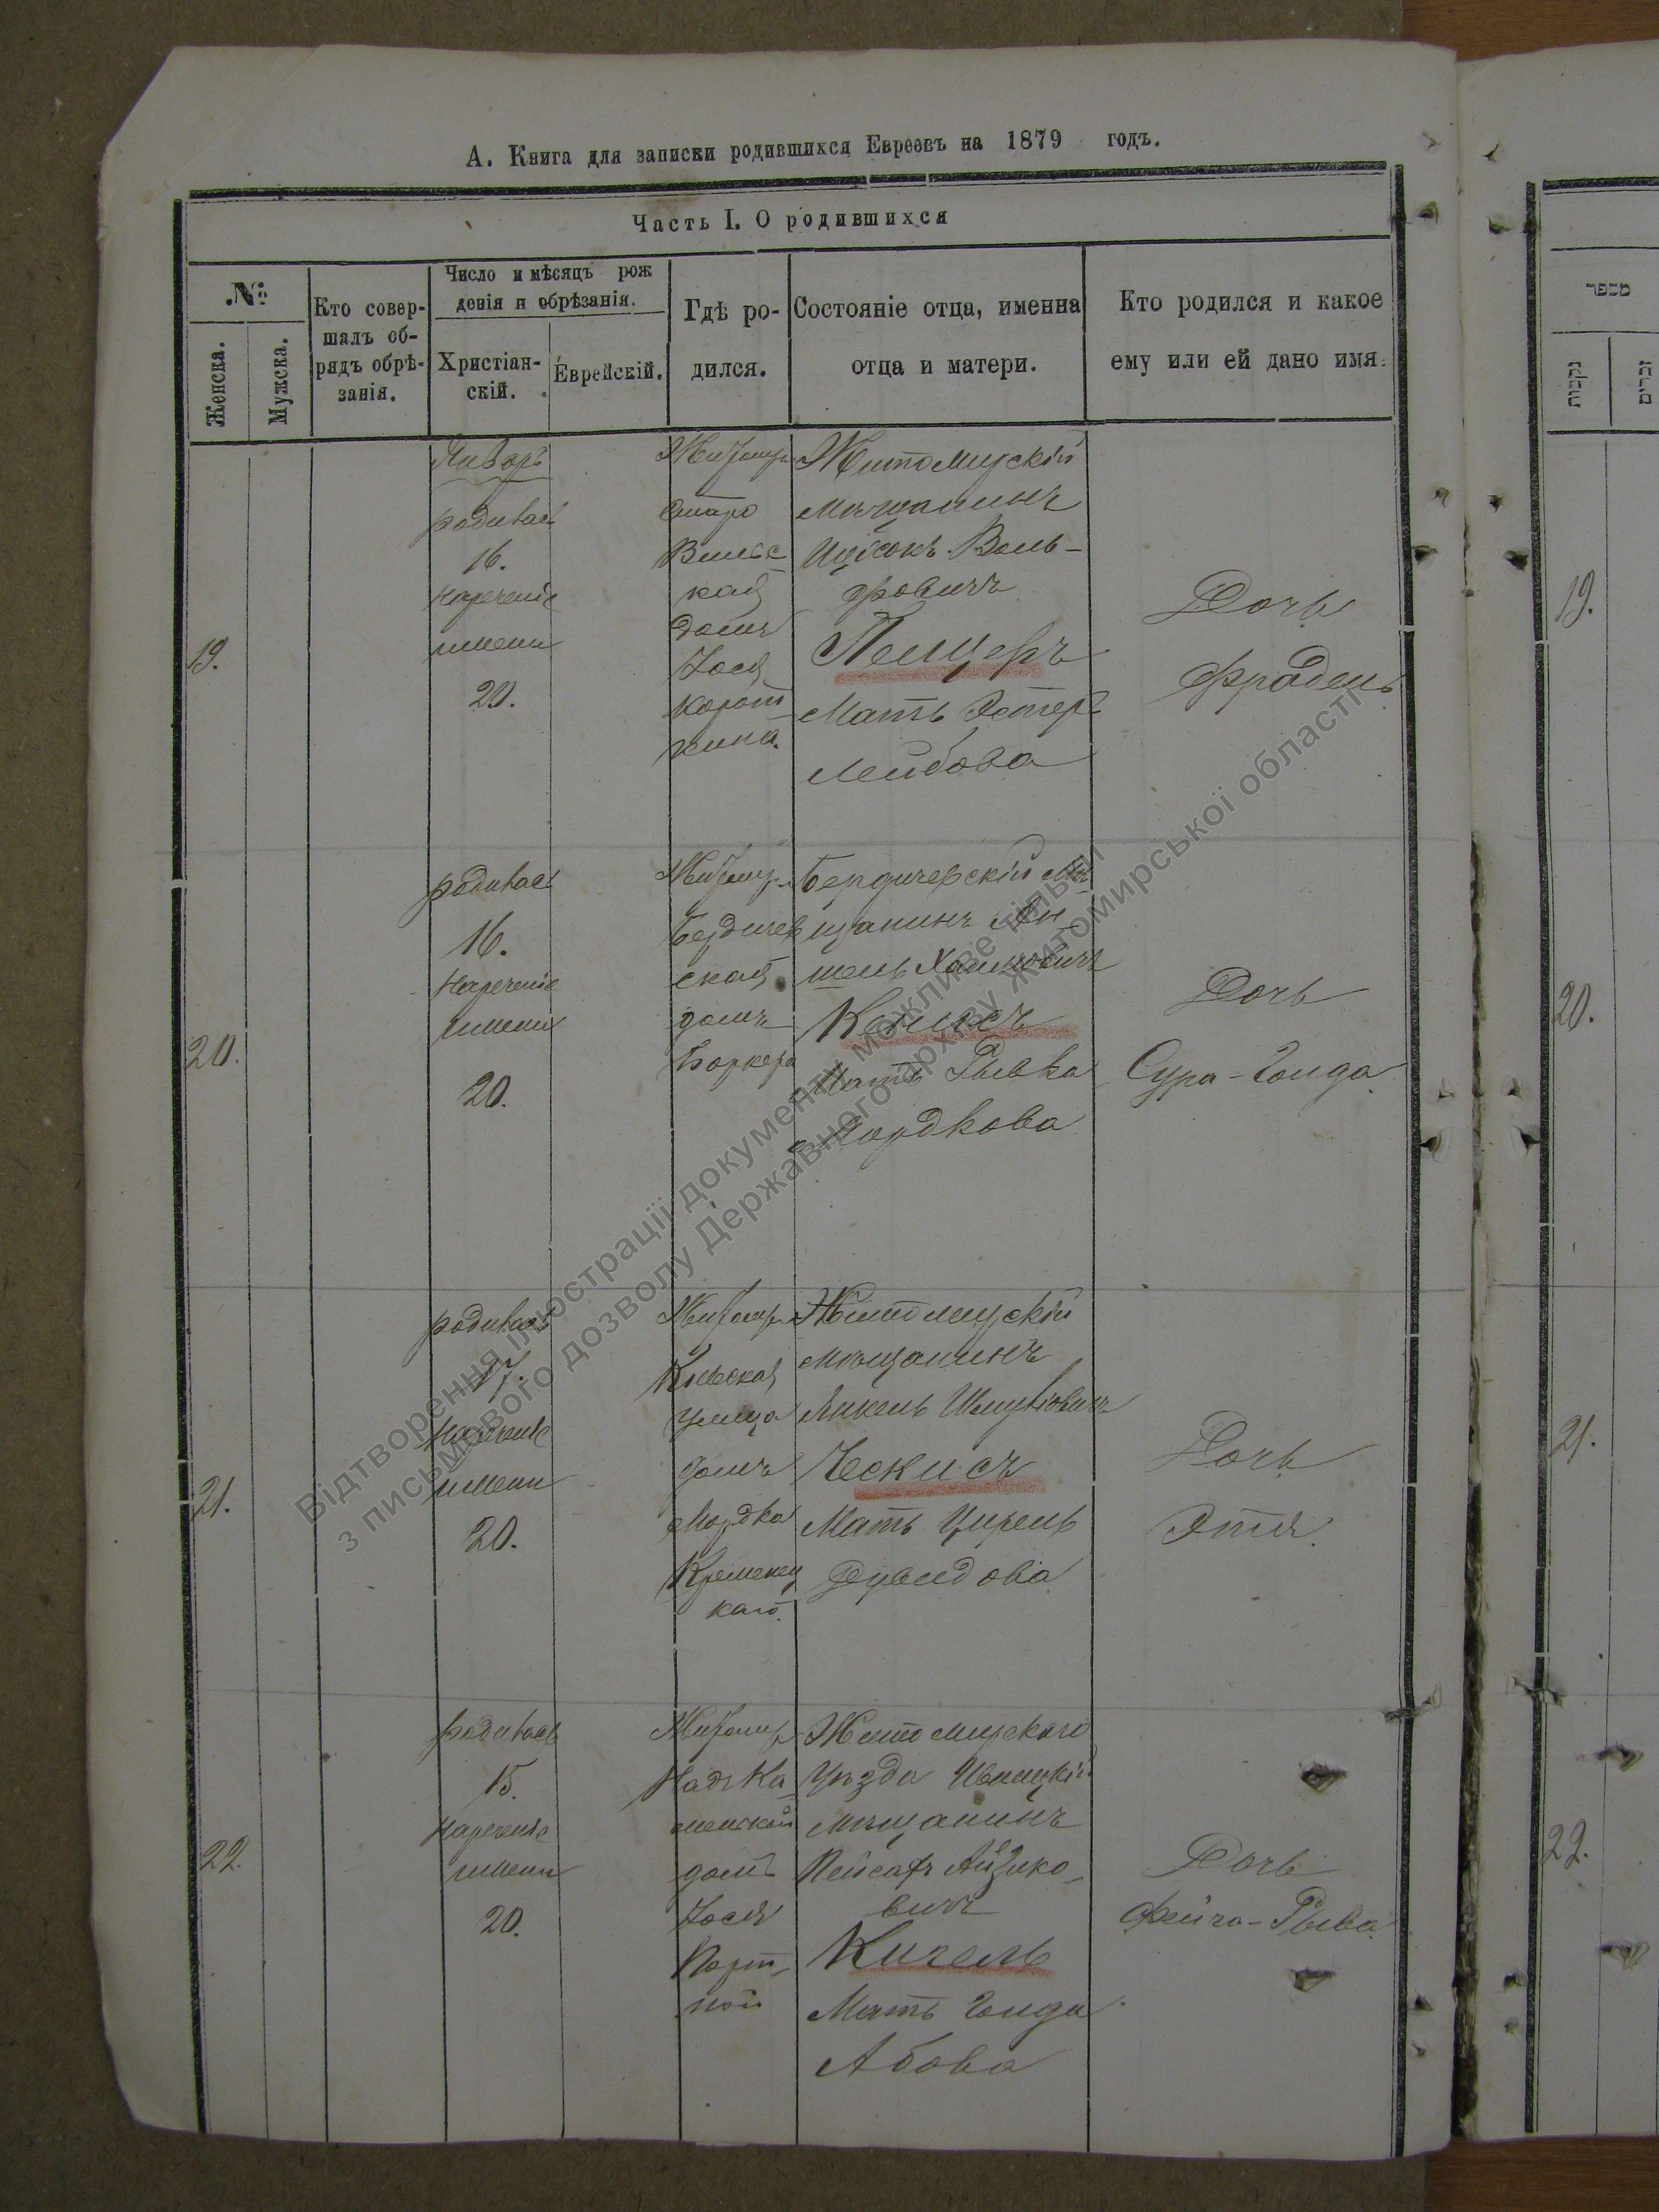 А. Книга для записки родившихся Евреевъ на 1879 годъ.
Часть I. О родившихся
№
Женска.
Мужска.
Кто совер-
шалъ об-
рядъ обрѣ-
занія.
Число и мѣсяцъ рож
денія и обрѣзанія.
Христіан-
скій.
Еврейскій.
Гдѣ ро-
дился.
Состояніе отца, именна
отца и матери.
Кто родился и какое
ему или ей дано имя.
19.
Январь
родилась
16.
Нареченіе
имени
20.
Житомир
Старо
Вильс
кая
домъ
Іося
Житомирскій
Мѣщанинъ
Ицхокъ Воль-
фовичъ
Пемцеръ
Мать Эстеръ
Лейбова
Дочь
Фрадель
20.
родилась
16.
Нареченіе
имени
20.
Житомир
Бердичев
ская
домъ
Боркера
Бердичевскій Мѣ
щанинъ Ан-
шель Хаимовичъ
Кенисъ
Мать Рывка
Мордкова
Дочь
Сура-Голда
21.
родилась
17.
Нареченіе
имени
20.
Житомир
Кіевская
улица
домъ
Мордка
Кременец
каго.
Житомирскій
Мѣщанинъ
Янкель Шмулiовичъ
Ческисъ
Мать Цирель
Дувидова
Дочь
Этя.
22.
родилась
15.
Нареченіе
имени
20.
Житомир
Надъ Ка
менской
домъ
Іося
Порт-
ной
Житомирскаго
Уѣзда Ивницкій
Мѣщанинъ
Пейсахъ Айзико-
вичъ
Кигель
Мать Голда
Абова
Дочь
Фейга-Рыва.
מספר
נקבות
זכרים
19.
20.
21.
22.
Відтворення ілюстрації документу можливе тільки
з письмового дозволу Державного архіву Житомирської області